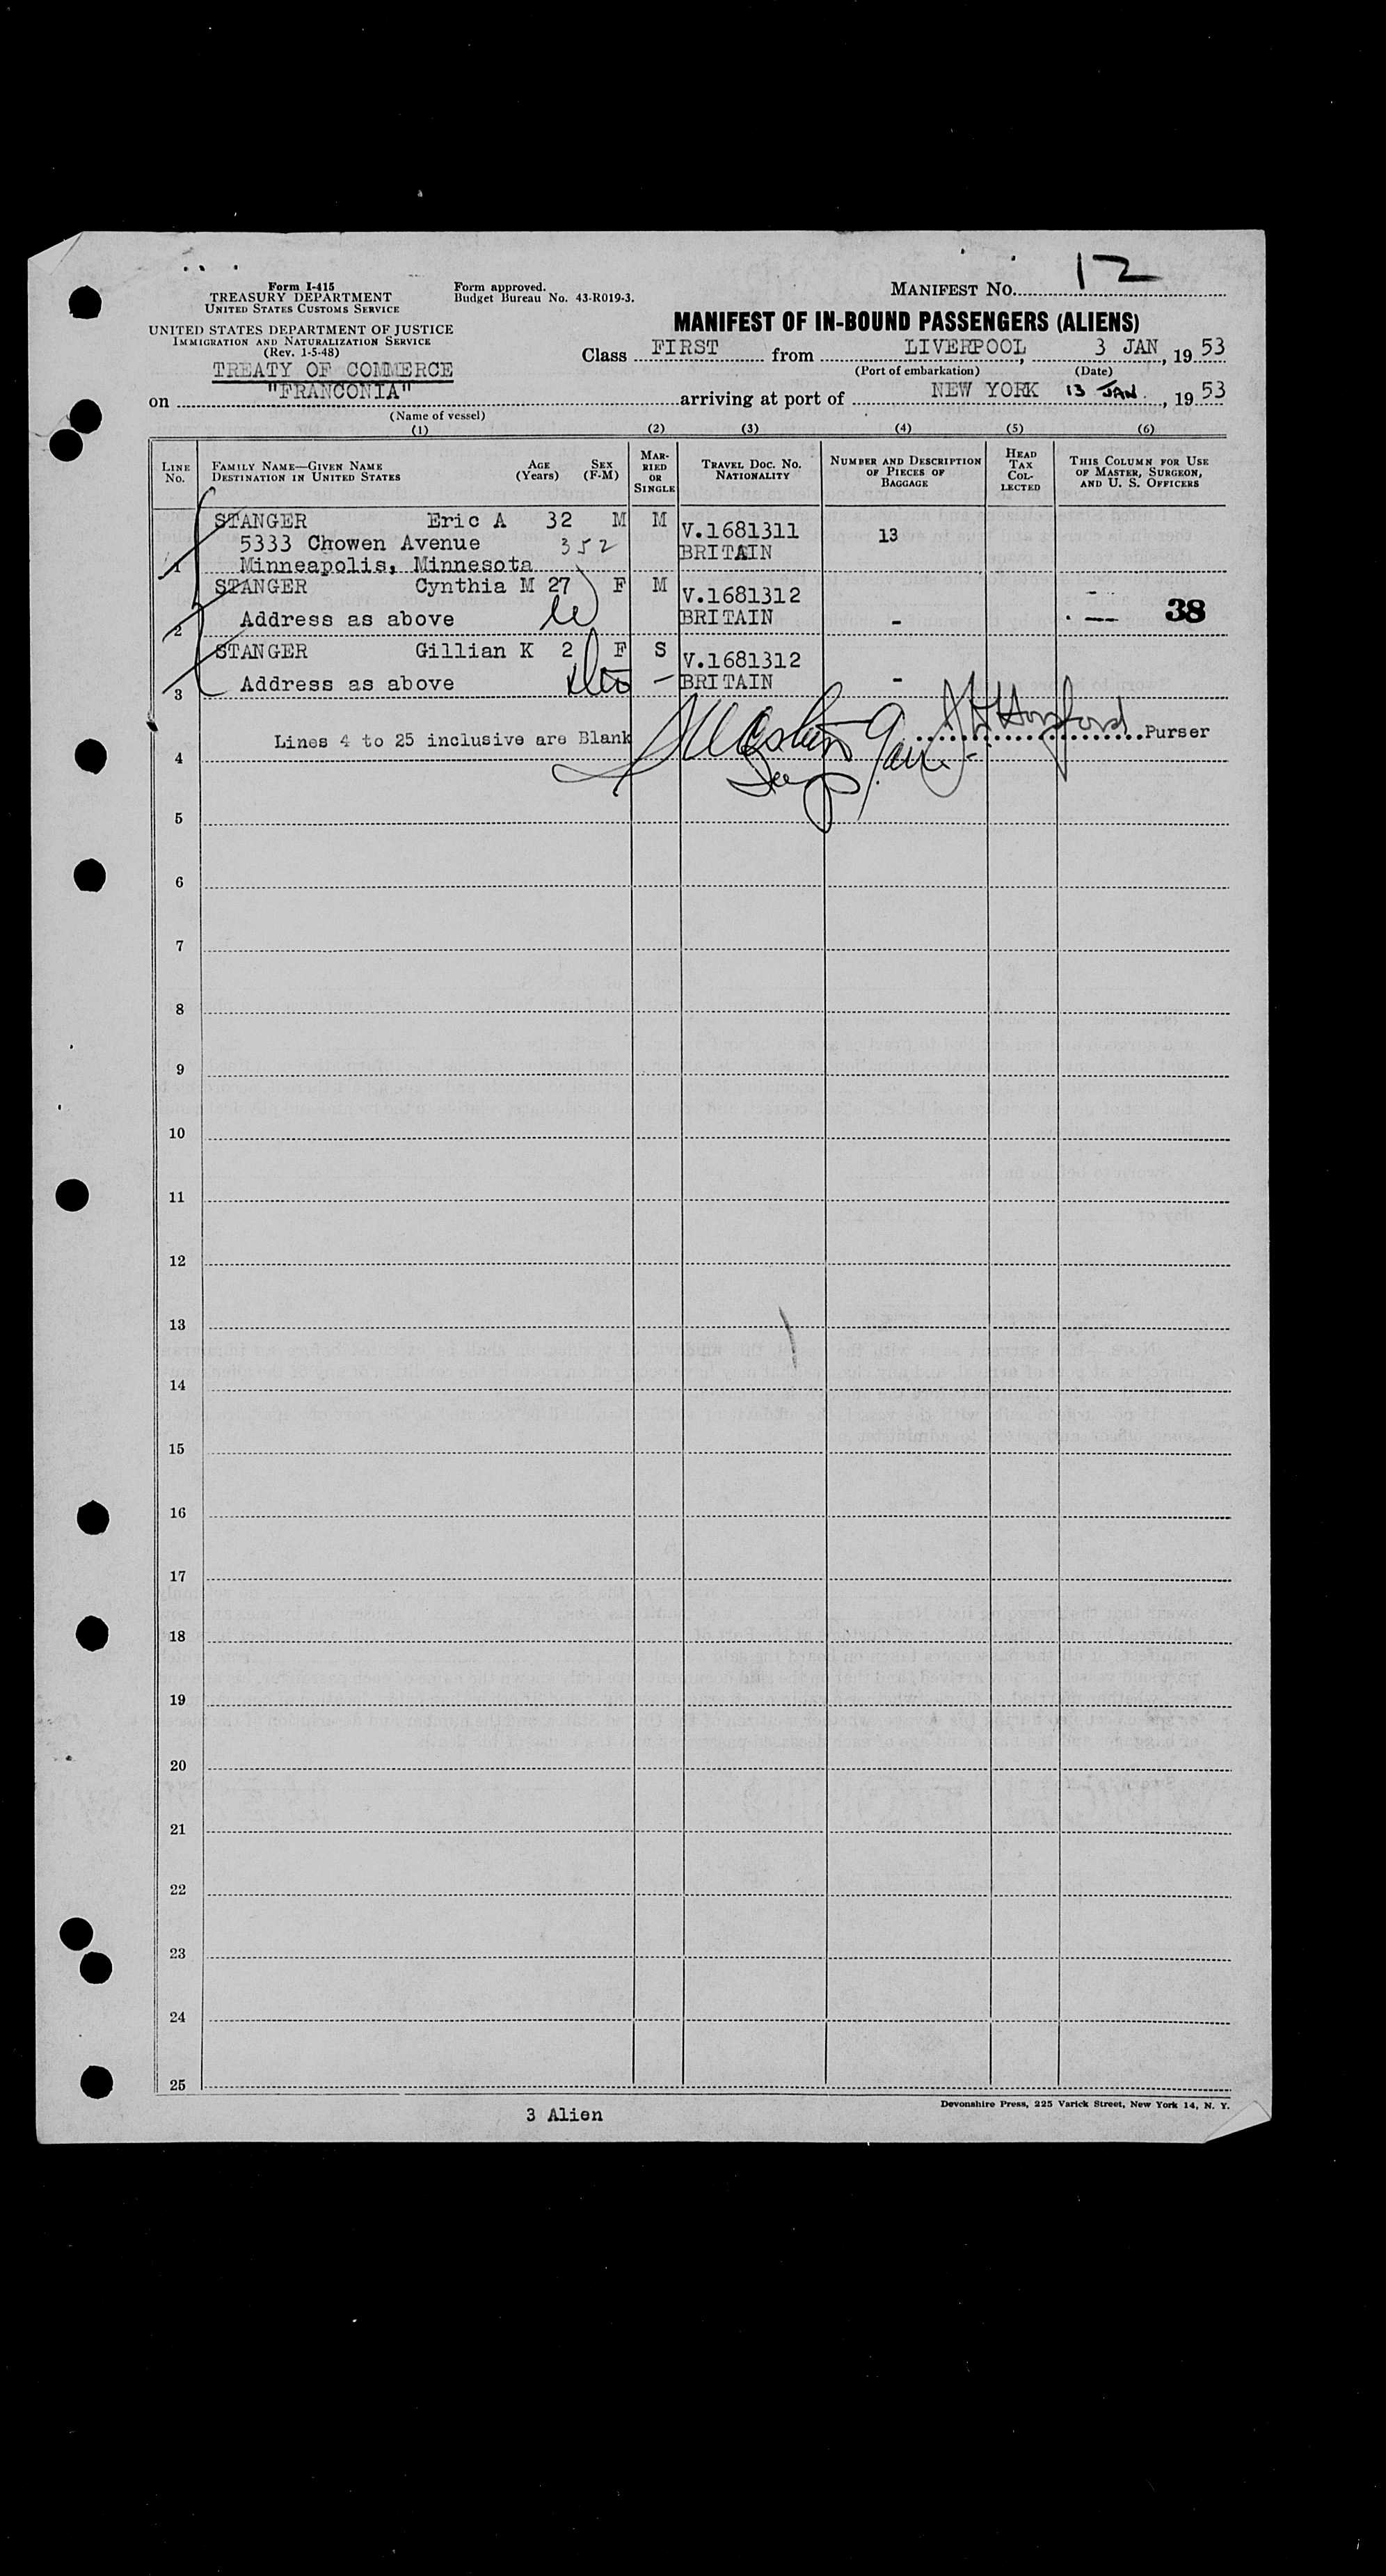 12
Form I-415
TREASURY DEPARTMENT
UNITED STATES CUSTOMS SERVICE
Form approved.
Budget Bureau No. 43-R019-3.
MANIFEST NO.
UNITED STATES DEPARTMENT OF JUSTICE
IMMIGRATION AND NATURALIZATION SERVICE
(Rev. 1-5-48)
MANIFEST OF IN-BOUND PASSENGERS (ALIENS)
TREATY OF COMMERCE
Class FIRST from LIVERPOOL, 3 JAN, 19 53
(Port of embarkation) (Date)
on "FRANCONIA" arriving at port of NEW YORK 13 JAN., 19 53
(Name of vessel)
(1) (2) (3) (4) (5) (6)
LINE NO. FAMILY NAME—GIVEN NAME DESTINATION IN UNITED STATES AGE (Years) SEX (F-M) MARRIED OR SINGLE TRAVEL DOC. NO. NATIONALITY NUMBER AND DESCRIPTION OF PIECES OF BAGGAGE HEAD TAX COLLECTED THIS COLUMN FOR USE OF MASTER, SURGEON, AND U. S. OFFICERS
STANGER Eric A 32 M M V.1681311 13
5333 Chowen Avenue 352 BRITAIN
1 Minneapolis, Minnesota
STANGER Cynthia M 27 F M V.1681312 38
2 Address as above BRITAIN -
STANGER Gillian K 2 F S V.1681312
3 Address as above BRITAIN -
Lines 4 to 25 inclusive are Blank Purser
4
5
6
7
8
9
10
11
12
13
14
15
16
17
18
19
20
21
22
23
24
25
Devonshire Press, 225 Varick Street, New York 14, N. Y.
3 Alien